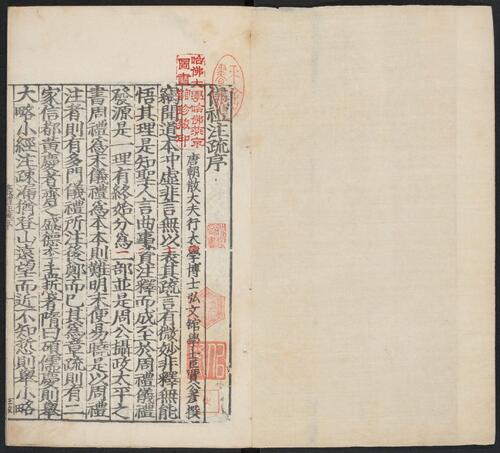 儀禮注疏序
唐朝散大夫行大學博士弘文館學士臣賈公彥撰
竊聞道本沖虛非言無以表其疏言有微妙非釋無能
悟其理是知聖人言曲事資注釋而成至於周禮儀禮
發源是一理有終始分爲二部並是周公攝政太平之
書周禮爲末儀禮爲本本則難明末便易曉是以周禮
注者則有多門儀禮所注後鄭而已其爲章疏則有二
家信都黃慶者齊之盛德李孟悊者隋曰碩儒慶則舉
大略小經注疏漏猶登山遠望而近不知悊則舉小略
哈佛大學哈佛燕京圖書館珍藏印